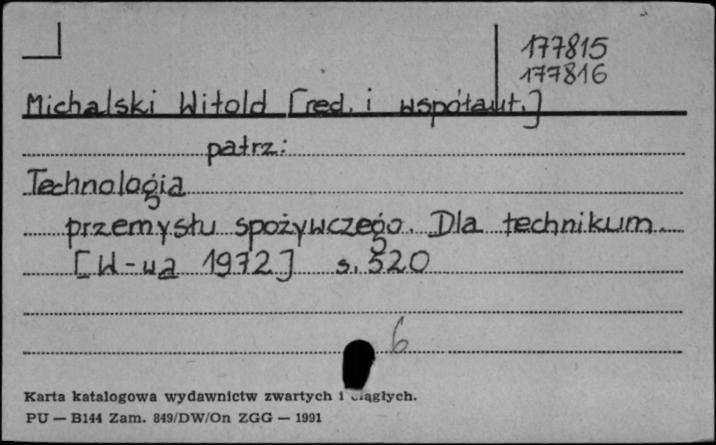 177815
177816
Michalski Witold [red. i współaut.]
patrz:
Technologia
przemysłu spożywczego. Dla technikum.
[W-wa 1972] s. 520
6
Karta katalogowa wydawnictw zwartych i ciągłych.
PU — B144 Zam. 849/DW/On ZGG — 1991